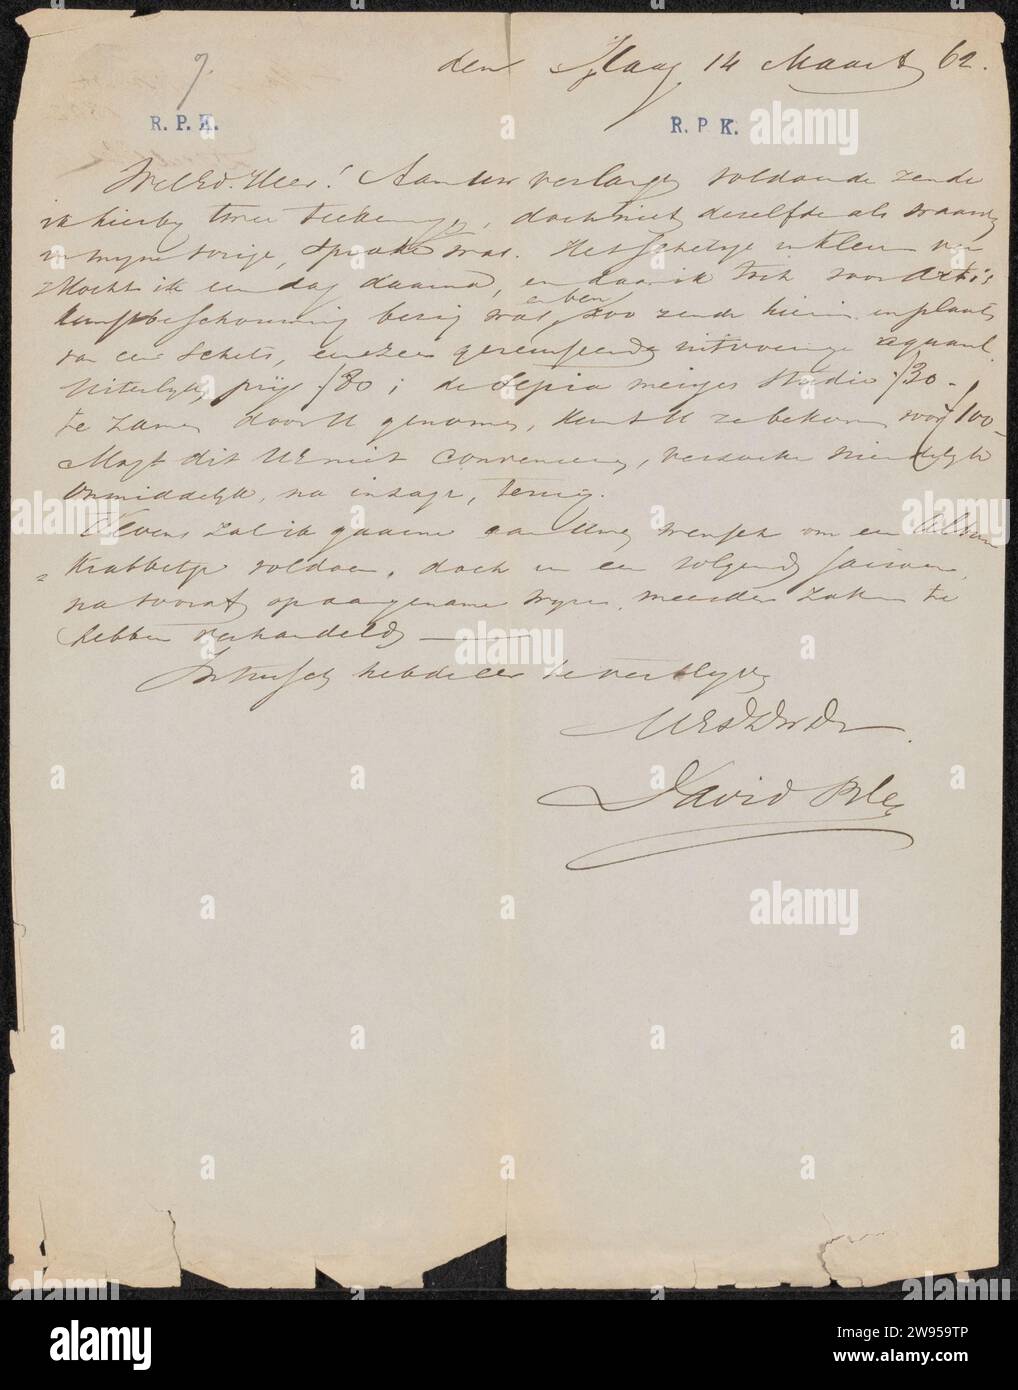 7.
den Haag 14 Maart 62.
R. P. K. R. P. K.
WelEd. Heer! Aan uw verlangen voldoende zende
ik hierby twee teekeningen, doch niet deselfde als waarvan
in myne vorige, sprake was. Het schetsje in kleur ver
kocht ik een dag daarna, en daar ik toch voor Artis
kunstbeschouwing bezig was, zoo zende hierin in plaats
van een schets, eene zeer
Uiterlyke prijs f80; de Sepia meisjes studie f30-
te zamen door U genomen, kunt U ze bekomen voor f100-
Mogt dit UE niet conveniëren, verzoeke vriendelyk
onmiddelyk, na inzage, terug.
Tevens zal ik gaarne aan Uwe wensch om een Album
Krabbeltje voldoen, doch in een volgend saisoen,
na vooraf op aangename wyze, meerder zaken te
hebben verhandeld
Intusschen heb de eer te verblyven
UEdDwDr
David Bles
alamy
Image ID: 2W959TP
www.alamy.com